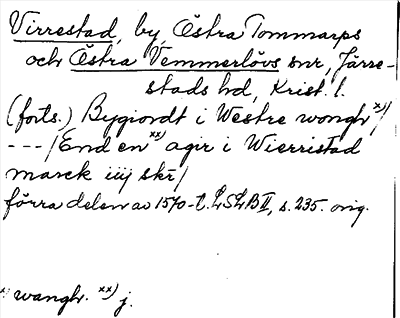 Virrestad, by, Östra Tommarps
och Östra Vemmerlövs snr, Järre-
stads hd, Krist. l.
(forts.) Bygiordt i Westre wonghr x)/
---/End en xx) agir i Wierristad
marck iiij skr/
förra delen av 1570-t. LSLB II, s. 235. orig.
x) wanghr. xx) j.